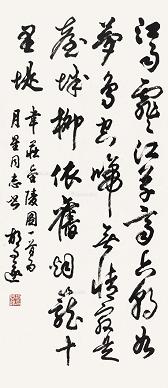 江雨霏霏江草齐六朝如
梦鸟空啼无情最是
台城柳依旧烟笼十
里堤
韦庄金陵图一首为
月星同志书